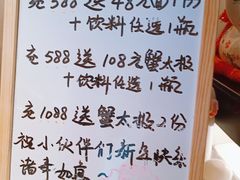 充588送48元面1份
+饮料任选1瓶
充588送108元蟹太极
+饮料任选1瓶
充1088送蟹太极2份
祝小伙伴们新年快乐
诸事如意~